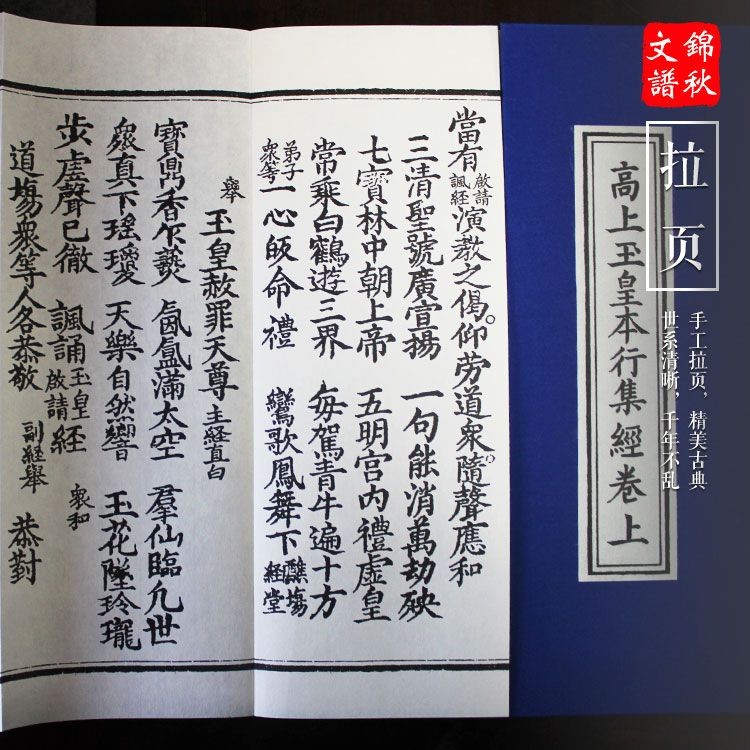 錦秋
文譜
拉页
手工拉页，精美古典
世系清晰，千年不乱
高上玉皇本行集經卷上
當有啟請諷經演教之偈。仰劳道衆。隨聲應和
三清聖號廣宣揚 一句能消萬劫殃
七寶林中朝上帝 五明宮内禮虚皇
常乘白鶴遊三界 每駕青牛遍十方
弟子衆等一心皈命禮 鸞歌鳳舞下醮塲経堂
舉 玉皇赦罪天尊 主経直白
寶鼎香乍爇 氤氲滿太空 羣仙臨凢世
衆真下瑤璦 天樂自然響 玉花墜玲瓏
步虚聲已徹 諷誦玉皇啟請経 衆和
道塲衆等人各恭敬 副経舉 恭對